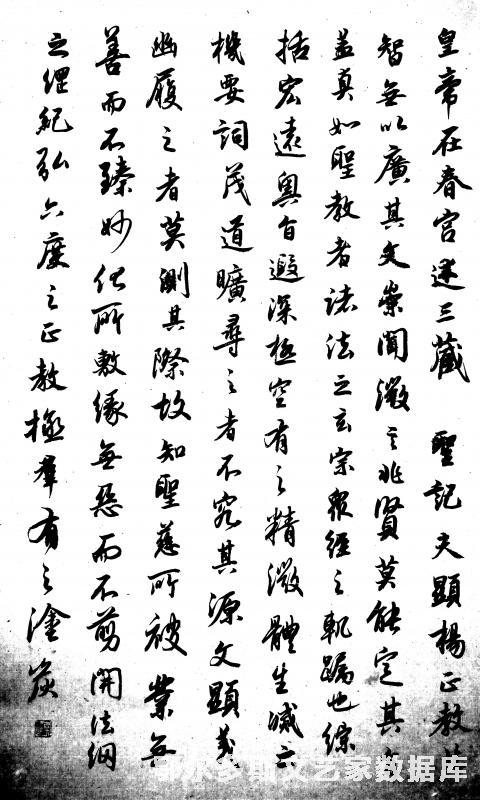 皇帝在春宮述三藏 聖記夫顯揚正教
智無以廣其文崇闡微言非賢莫能定其
蓋真如聖教者諸法之玄宗衆經之軌躅也綜
括宏遠奧旨遐深極空有之精微體生滅之
機要詞茂道曠尋之者不究其源文顯義
幽履之者莫測其際故知聖慈所被業無
善而不臻妙化所敷緣無惡而不剪開法網
之綱紀弘六度之正教拯羣有之塗炭
鄂尔多斯文艺家数据库